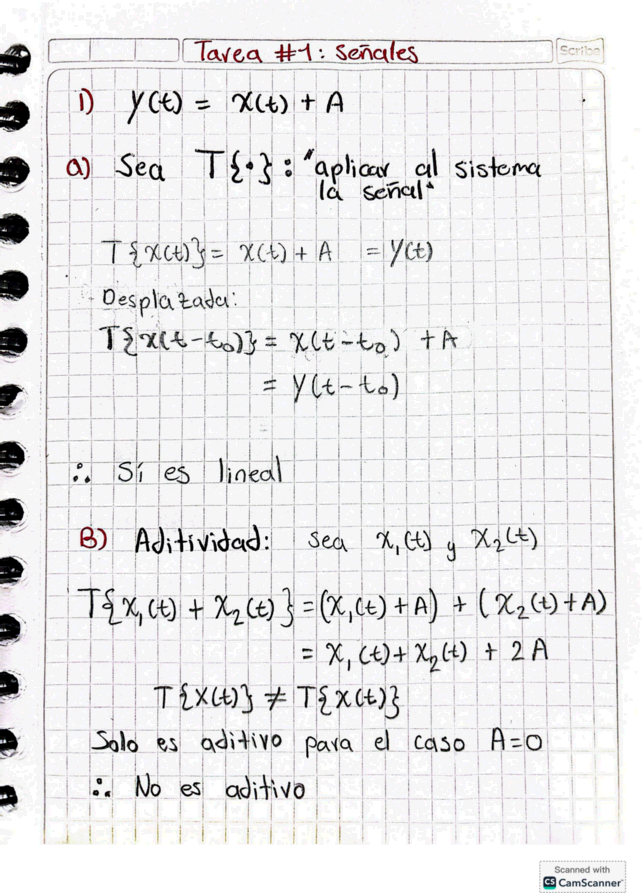 Tarea #1: Señales
Scribe
1) Y(t) = x(t) + A
a) Sea T{·}: "aplicar al sistema
la señal"
T{x(t)} = x(t) + A = Y(t)
Desplazada:
T{x(t-t₀)} = x(t-t₀) + A
= Y(t-t₀)
∴ Sí es lineal
B) Aditividad: sea x₁(t) y x₂(t)
T{x₁(t) + x₂(t)} = (x₁(t) + A) + (x₂(t) + A)
= x₁(t) + x₂(t) + 2A
T{x(t)} ≠ T{x(t)}
Solo es aditivo para el caso A=0
∴ No es aditivo
Scanned with
CS CamScanner